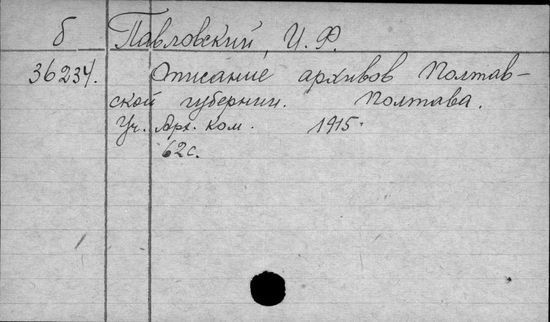 б Павловский, И. Ф.
36234. Описание архивов Полтав-
ской губернии. Полтава.
Уч. Арх. ком. 1915.
62с.